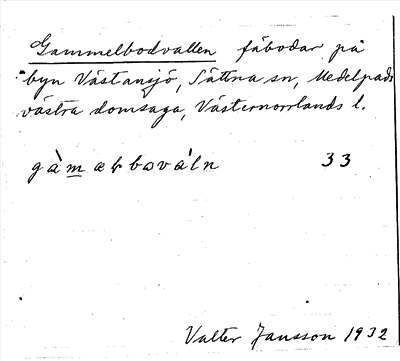 Gammelbodvallen fäbodar på
byn Västansjö, Sättna sn, Medelpads
västra domsaga, Västernorrlands l.
33
Valter Jansson 1932